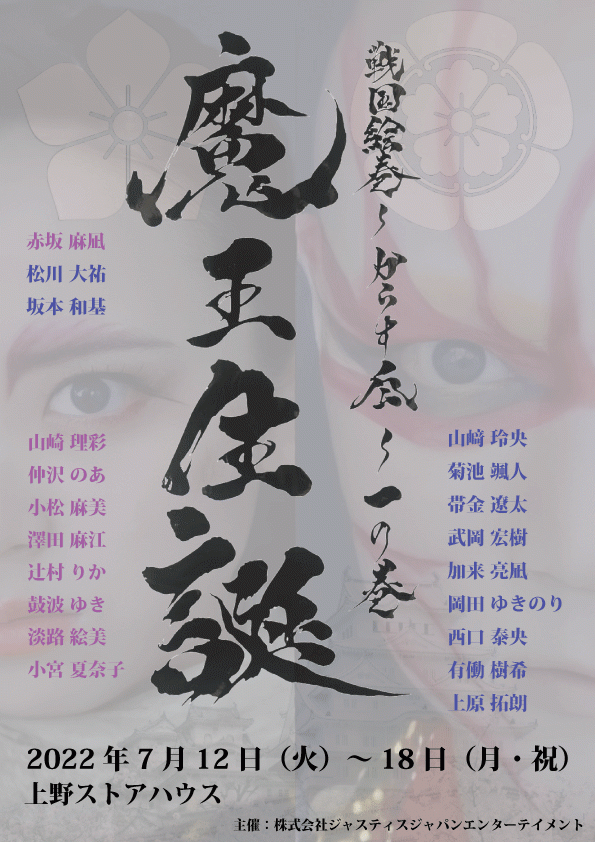 戦国絵巻～からす凮～一の巻
魔王生誕
赤坂 麻凪
松川 大祐
坂本 和基
山崎 理彩
仲沢 のあ
小松 麻美
澤田 麻江
辻村 りか
鼓波 ゆき
淡路 絵美
小宮 夏奈子
山﨑 玲央
菊池 颯人
帯金 遼太
武岡 宏樹
加来 亮凪
岡田 ゆきのり
西口 泰央
有働 樹希
上原 拓朗
2022年7月12日（火）～18日（月・祝）
上野ストアハウス
主催：株式会社ジャスティスジャパンエンターテイメント